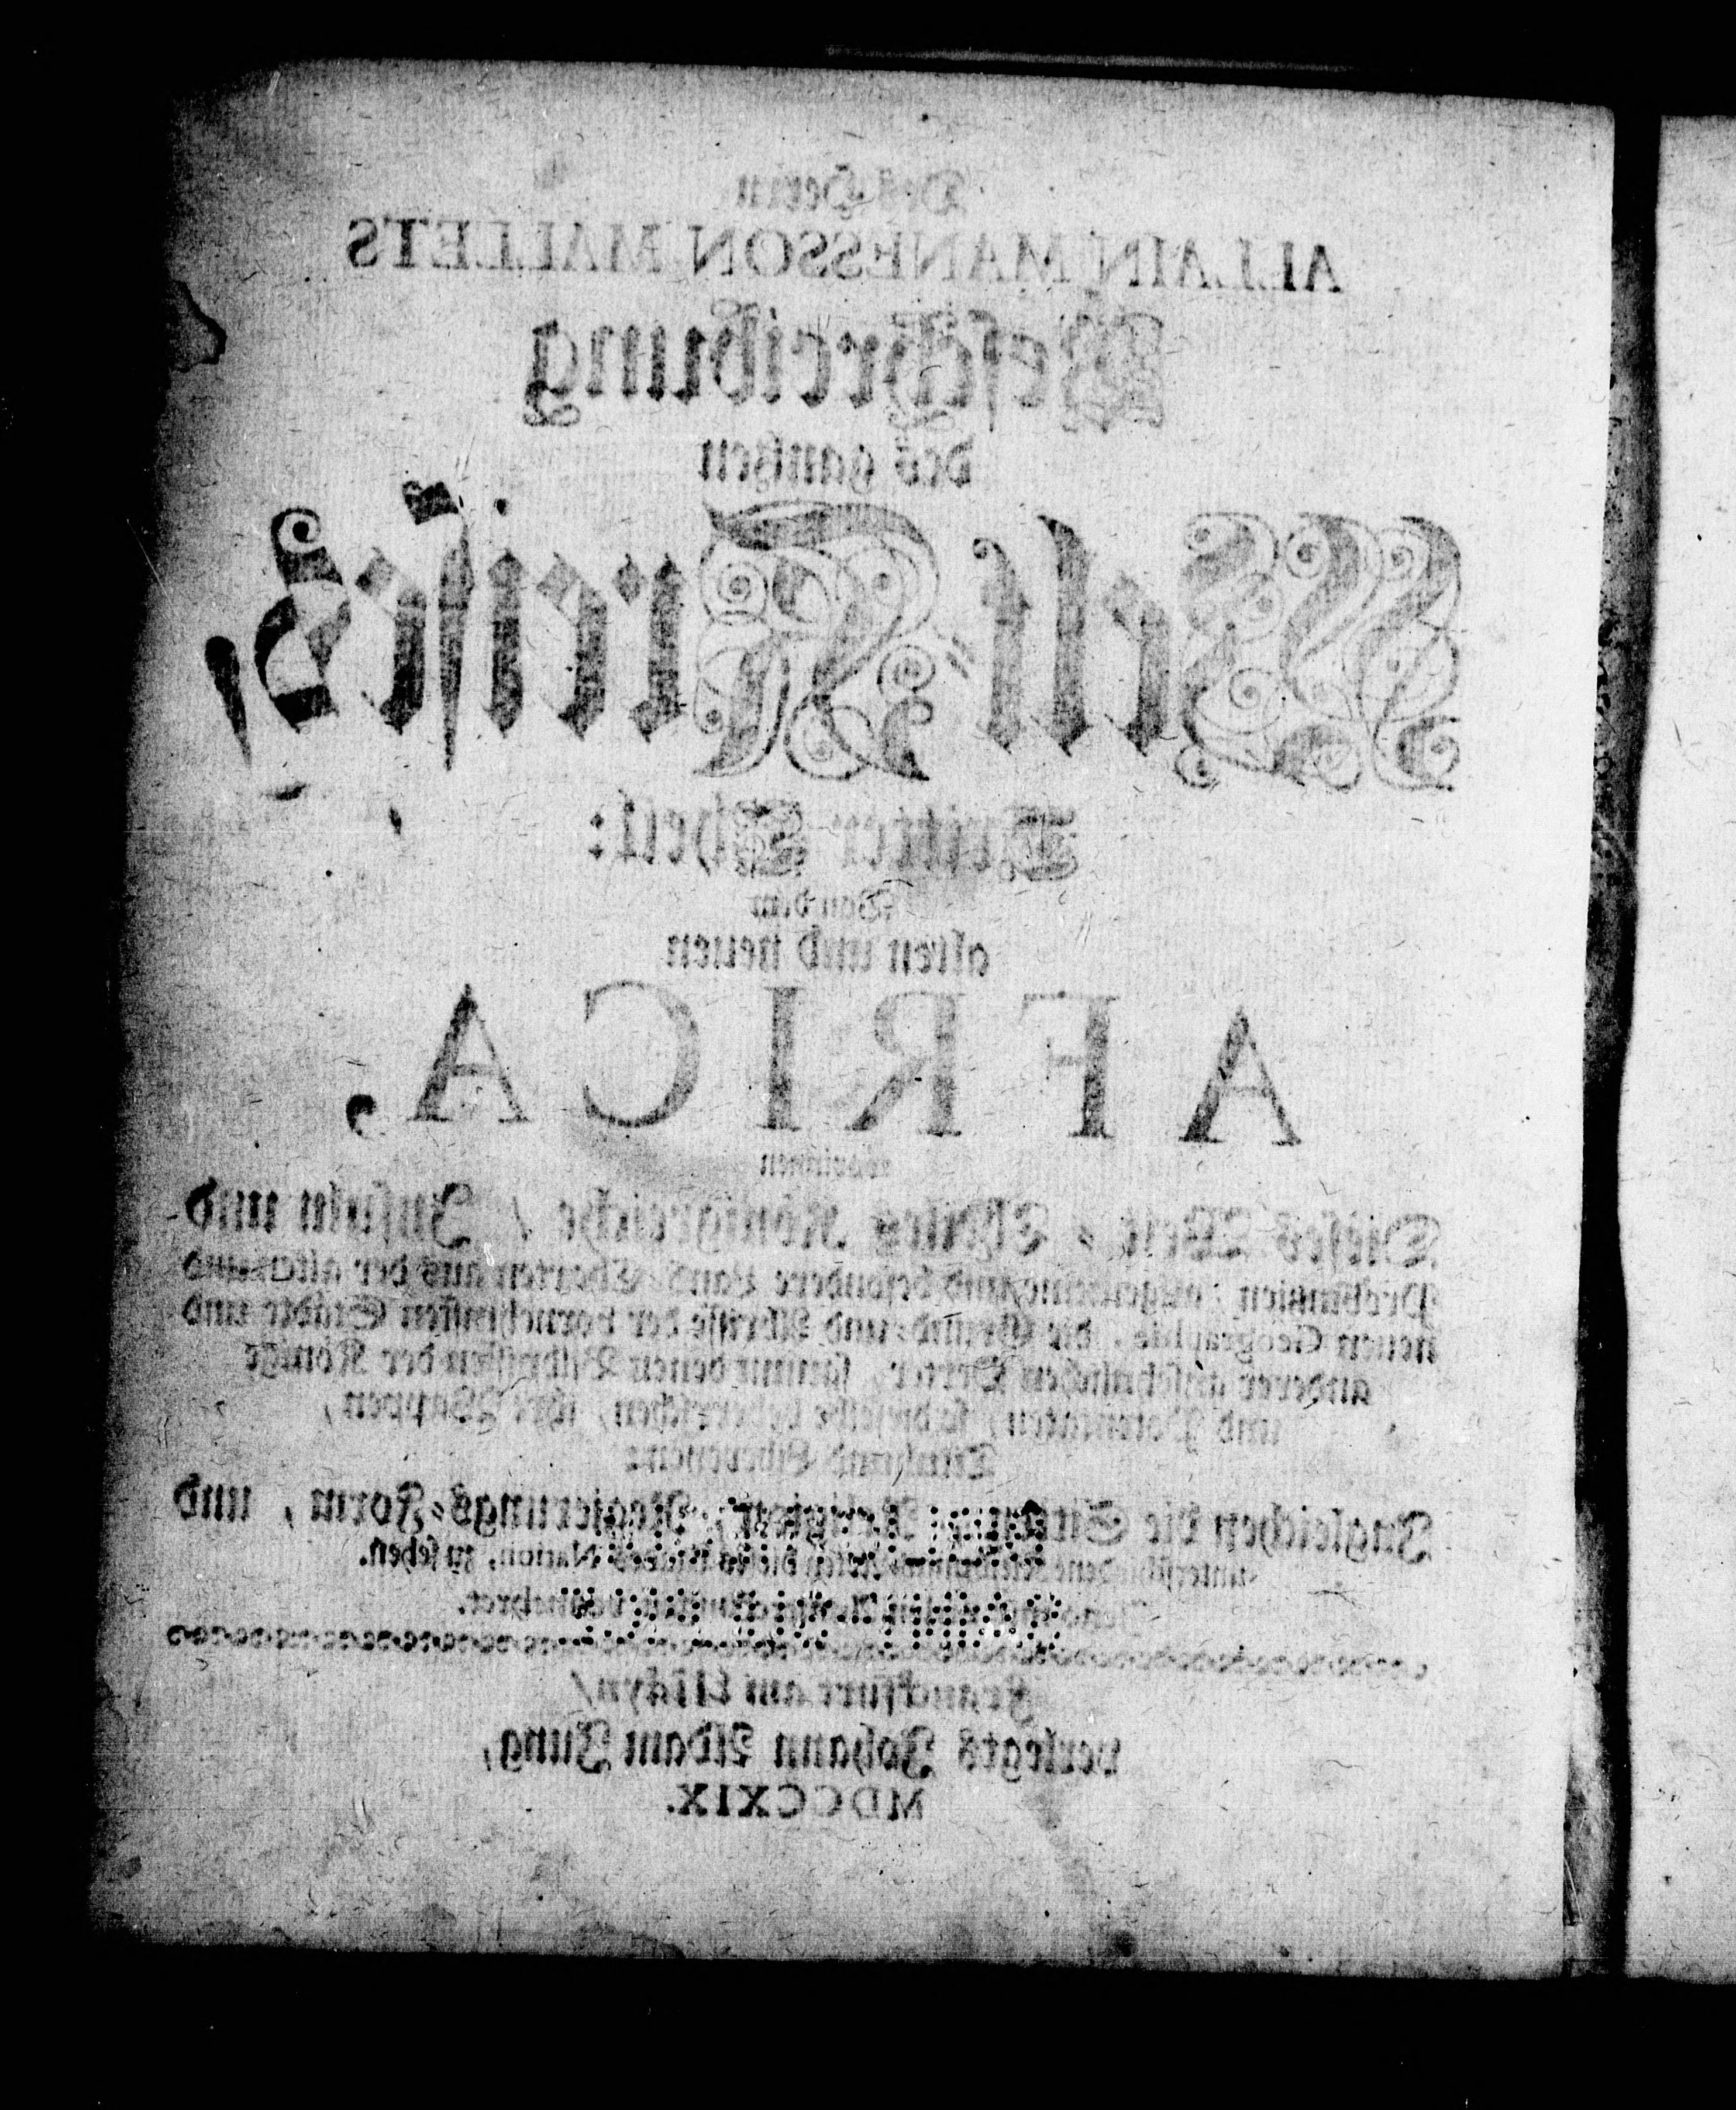 Des Herrn
ALLAIN MANESSON MALLETS
Beschreibung
des gantzen
Welt-Kreises,
Dritter Theil:
Von dem
alten und neuen
AFRICA,
worinnen
Dieses Welt-Theils Königreiche / Insuln und
Provintzien / allgemeine und besondere Land-Charten aus der alten und
neuen Geographie, die Grund- und Abrisse der vornehmsten Städte und
anderer ansehnlichen Oerter, sammt denen Bildnissen der Könige
und Potentaten, so dieselbe beherrschen, ihre Wappen,
Titul und Libereyen:
Ingleichen die Sitten, Religion, Regierungs-Form, und
unterschiedene Kleidungs-Arten Nation, zu sehen.
vermehret.
Franckfurt am Mayn/
verlegts Johann Adam Jung,
MDCCXIX.